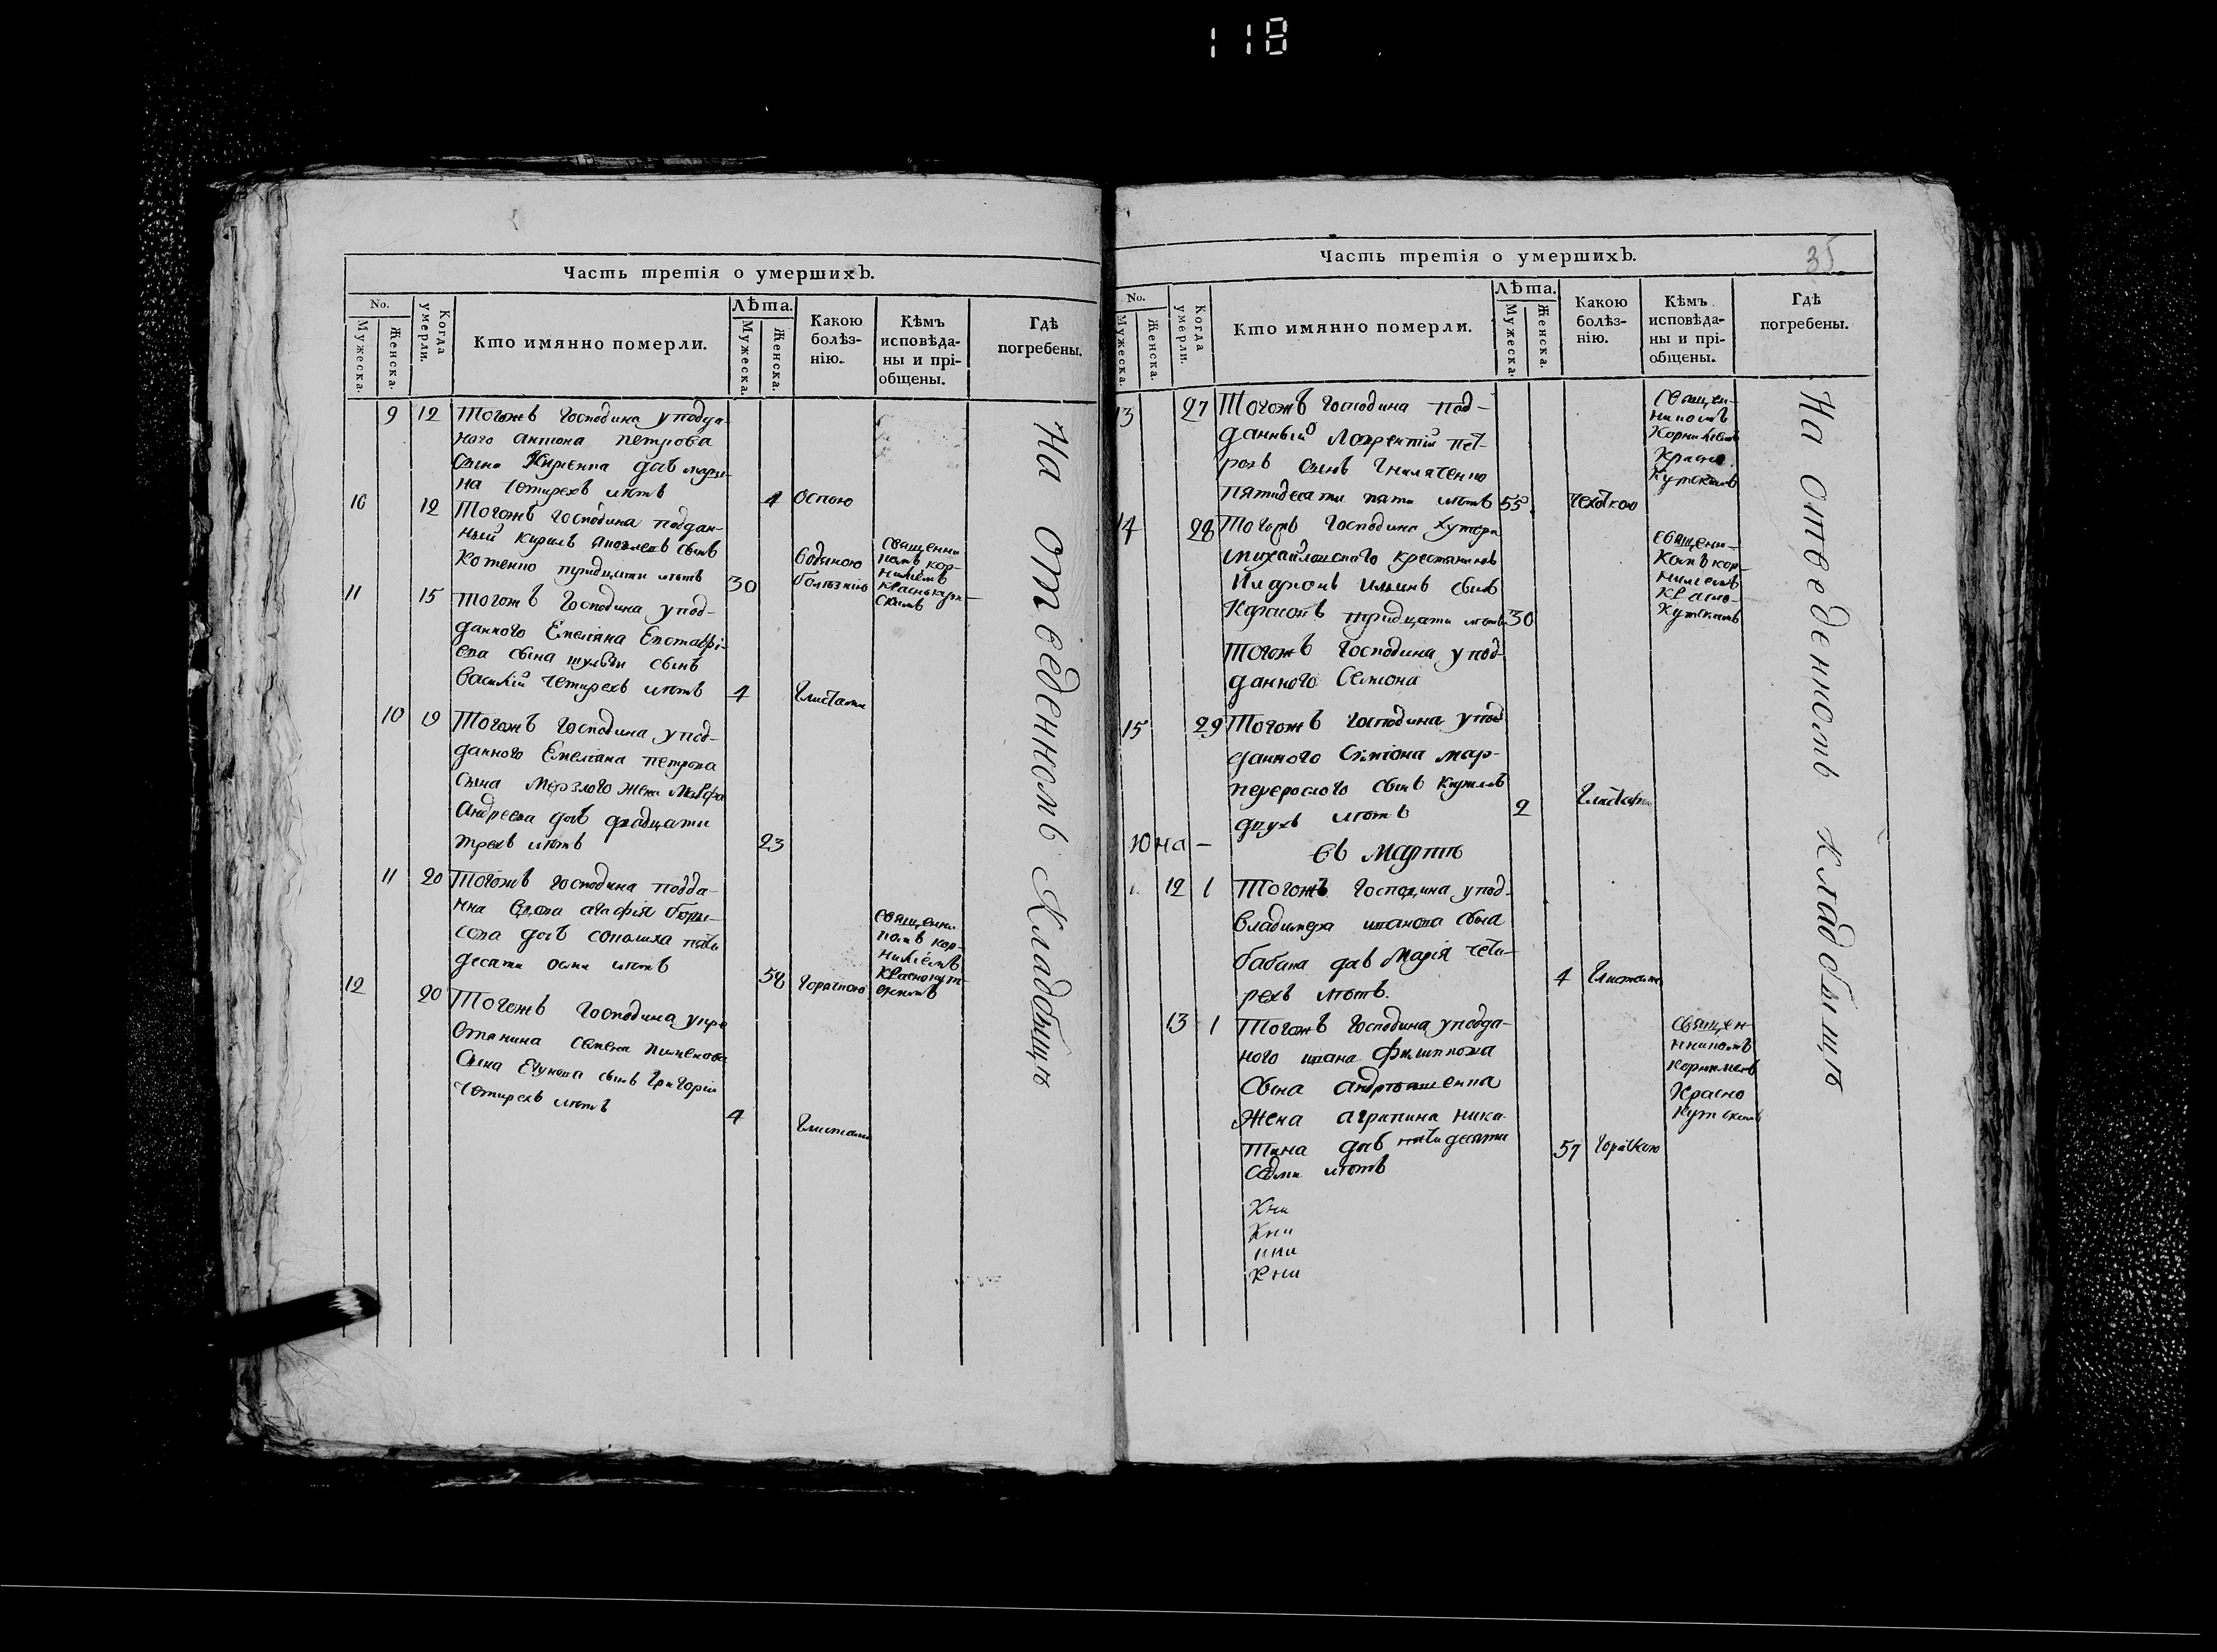 118
Часть третія о умершихъ.
No.
Мужеска.
Женска.
Когда умерли.
Кто имянно померли.
Лѣта.
Мужеска.
Женска.
Какою болѣз-
нію.
Кѣмъ
исповѣда-
ны и прі-
общены.
Гдѣ
погребены.
9 12 Тогожъ господина уподда-
ного антона петрова
сына дочь
на четирехъ лѣтъ 4 оспою
10 12 Тогожъ господина поддан-
ный кирилъ сынъ
Котенко тридцати лѣтъ 30 водяною
болѣзнію
священни
комъ кор-
ниліемъ
краснокут-
скимъ
11 15 тогожъ господина упод-
данного Емеліана Евстафі-
ева сына сынъ
василій четирехъ лѣтъ 4 глистами
10 19 Тогожъ господина упод-
данного Емеліана петрова
сына мерзлого жена Марфа
Андреева дочь двадцати
трехъ лѣтъ 23
11 20 Тогожъ господина подда-
нна вдова агафія бори-
сова дочь соколиха пяти
десяти осми лѣтъ 58 горячкою
священни
комъ кор-
ниліемъ
краснокут-
скимъ
12 20 Тогожъ господина укре
стянина семена пименова
сына сынъ григорій
четирехъ лѣтъ 4 глистами
На отведенномъ кладбищѣ
Часть третія о умершихъ.
35
No.
Мужеска.
Женска.
Когда умерли.
Кто имянно померли.
Лѣта.
Мужеска.
Женска.
Какою
болѣз-
нію.
Кѣмъ
исповѣда-
ны и прі-
общены.
Гдѣ
погребены.
13 27 Тогожъ господина под-
данный Лаврентій пет-
ровъ сынъ гнилятенко
пятидесяти пяти лѣтъ 55 чехоткою
священ-
никомъ
Корниліемъ
Красно
кутскимъ
14 28 Тогожъ господина хутора
михайловского крестянинъ
Иларіонъ илиинъ сынъ
тридцати лѣтъ 30
священни-
комъ кор-
ниліемъ
красно-
кутскимъ
тогожъ господина упод-
данного Семіона
15 29 Тогожъ господина упод
данного Симіона мар-
сынъ кирилъ
двухъ лѣтъ 2 глистами
Юна —
въ Мартѣ
12 1 Тогожъ господина упод-
владимера иванова сына
бабака дочь Марія чети-
рехъ лѣтъ. 4 глистами
13 1 Тогожъ господина уподда-
ного ивана филиппова
сына андрющенка
жена агрипина ники-
тина дочь пяти десяти
седми лѣтъ 57 горячкою
священ-
никомъ
корниліемъ
Красно
кутскимъ
Кни
Кни
Кни
На отведенномъ кладбищѣ